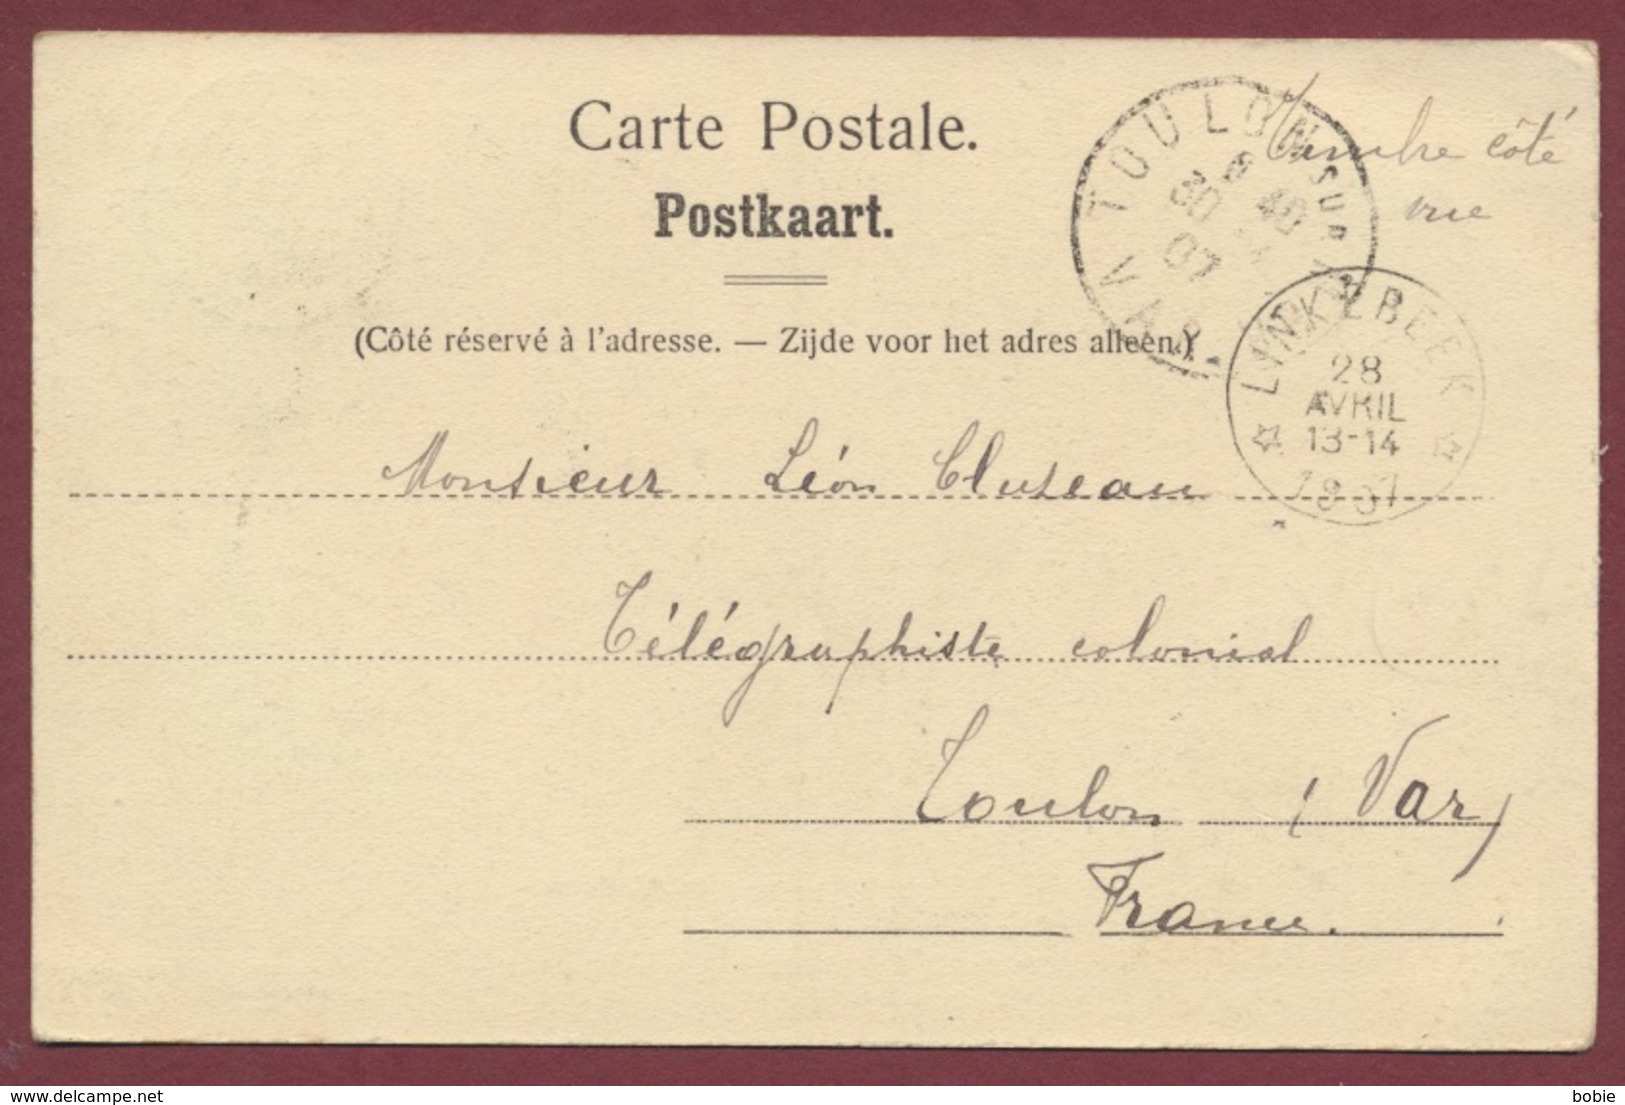 Carte Postale.
Postkaart.
(Côté réservé à l'adresse. — Zijde voor het adres alleen.)
Timbre côté
vue
TOULON SUR
VAR
30
40
07
LINKEBEEK
28
AVRIL
13-14
1907
Monsieur Léon Cluzeau
Télégraphiste colonial
Toulon (Var)
France.
delcampe.net
bobie